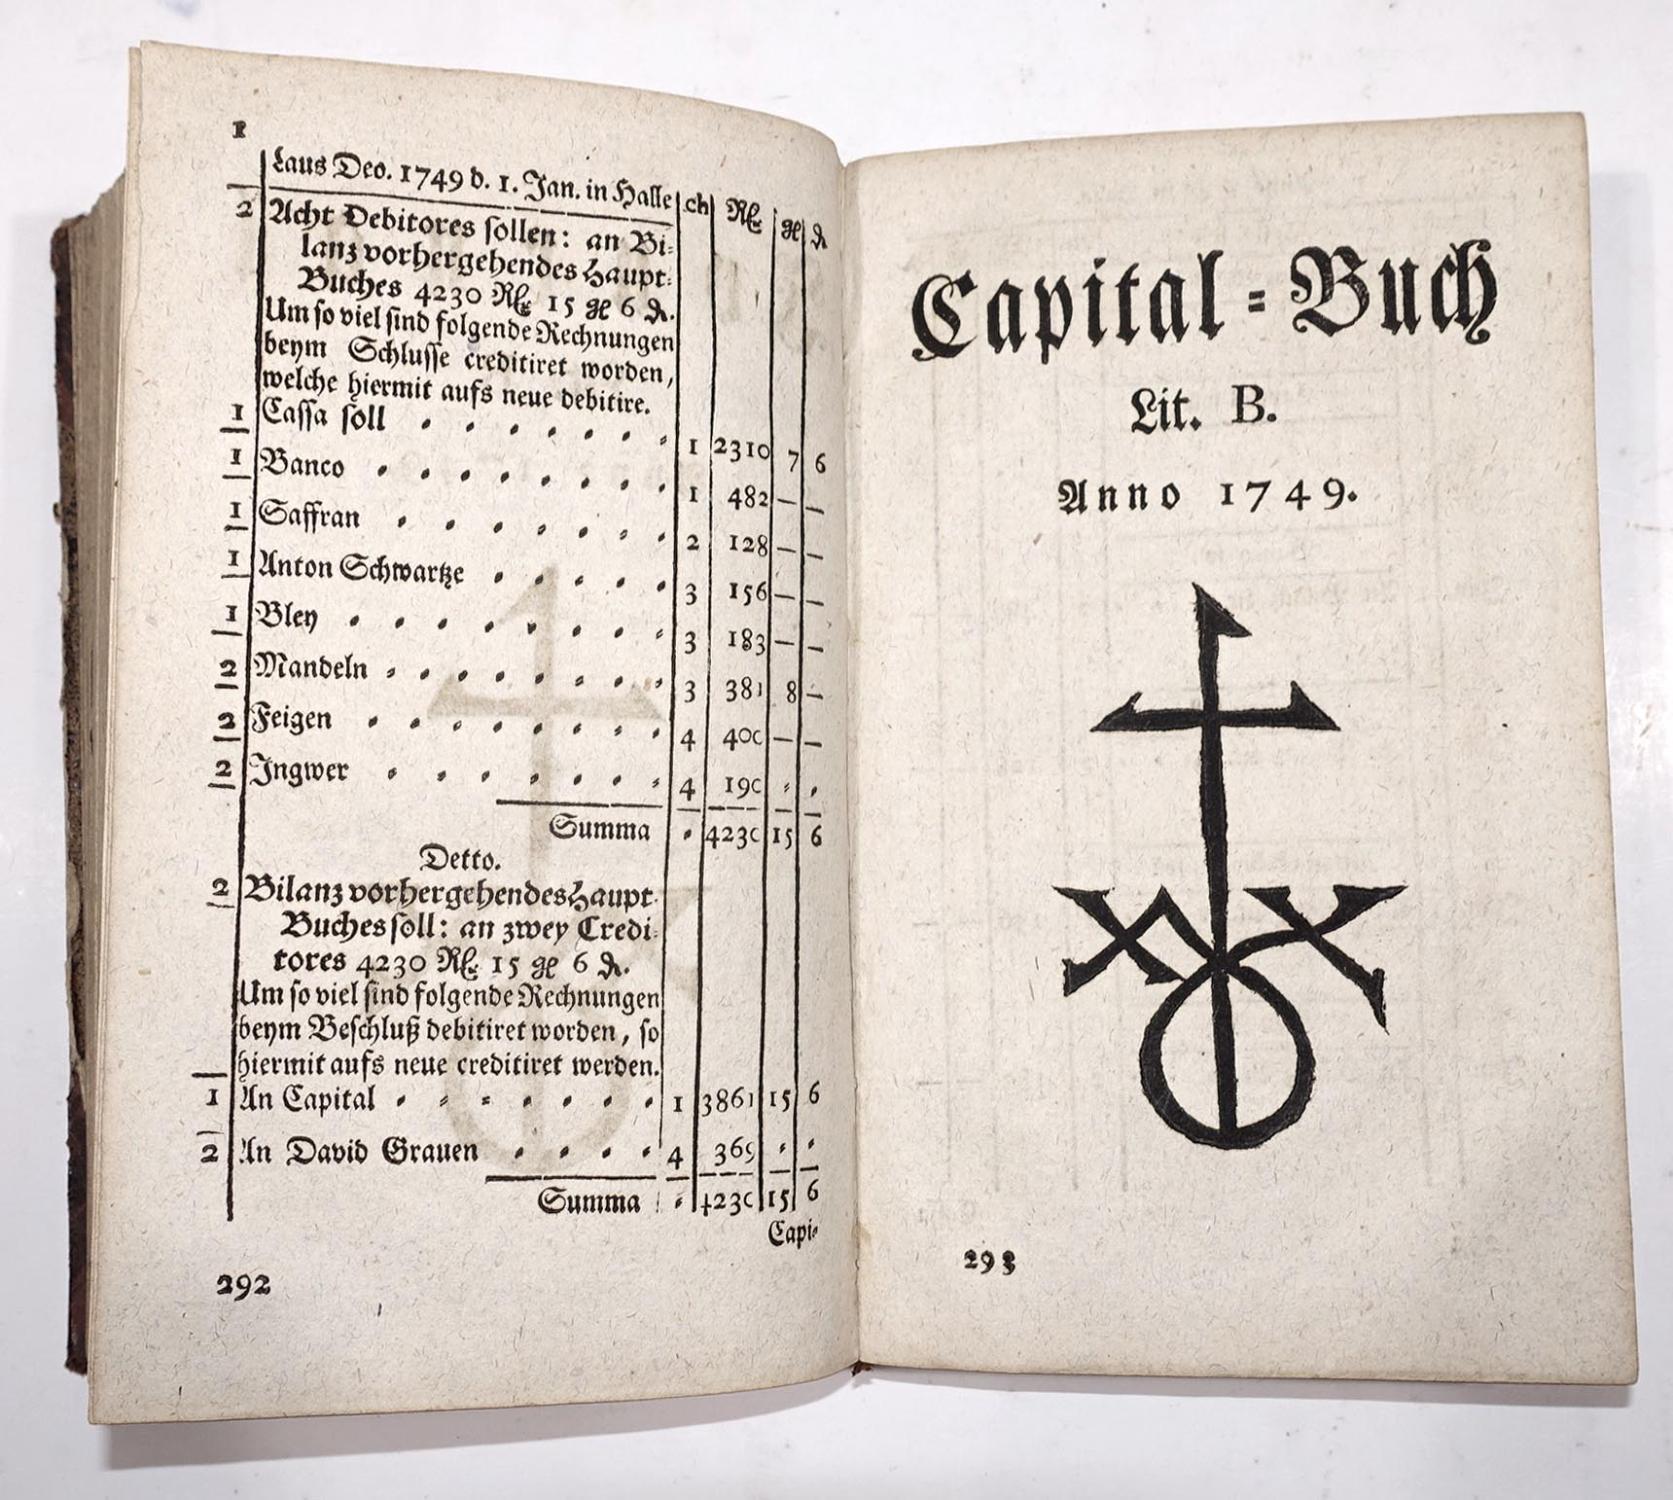 1
Laus Deo. 1749 d. 1. Jan. in Halle ch Rl. gl. d.
2 Acht Debitores sollen: an Bi-
lanz vorhergehendes Haupt-
Buches 4230 Rl. 15 gl. 6 d.
Um so viel sind folgende Rechnungen
beym Schlusse creditiret worden,
welche hiermit aufs neue debitire.
1 Cassa soll 1 2310 7 6
1 Banco 1 482 — —
1 Saffran 2 128 — —
1 Anton Schwartze 3 156 — —
1 Bley 3 183 — —
2 Mandeln 3 381 8 —
2 Feigen 4 400 — —
2 Ingwer 4 190
Summa 4230 15 6
Detto.
2 Bilanz vorhergehendes Haupt-
Buches soll: an zwey Credi-
tores 4230 Rl. 15 gl. 6 d.
Um so viel sind folgende Rechnungen
beym Beschluß debitiret worden, so
hiermit aufs neue creditiret werden.
1 An Capital 1 3861 15 6
2 An David Grauen 4 369
Summa 4230 15 6
Capi-
292
Capital-Buch
Lit. B.
Anno 1749.
293